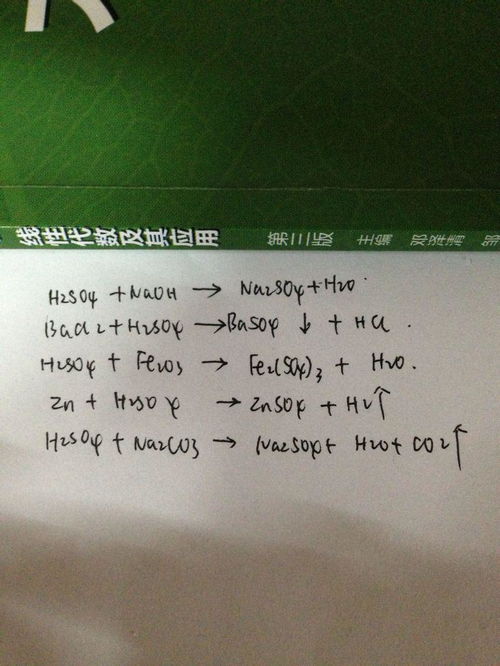 线性代数及其应用 第三版 主编 邓泽清
H2SO4 + NaOH → Na2SO4 + H2O
BaCl2 + H2SO4 → BaSO4 ↓ + HCl .
H2SO4 + Fe2O3 → Fe2(SO4)3 + H2O.
Zn + H2SO4 → ZnSO4 + H2↑
H2SO4 + Na2CO3 → Na2SO4 + H2O + CO2↑